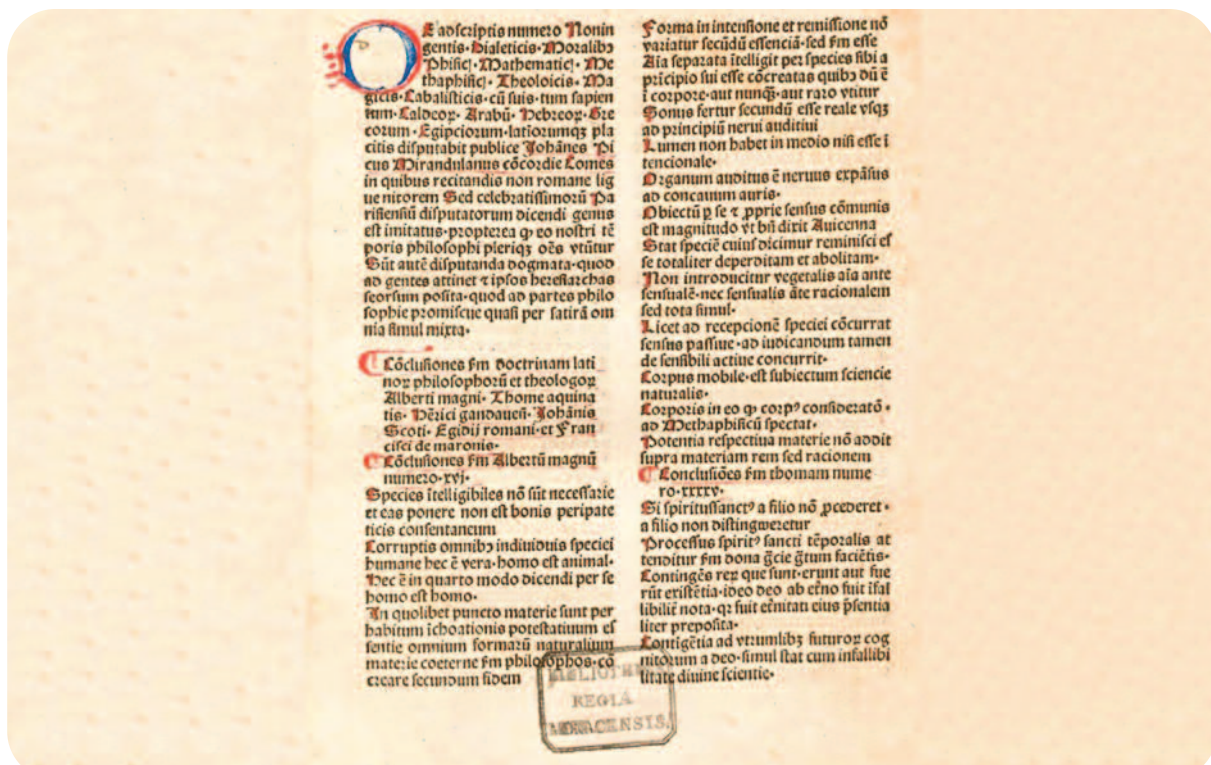 DE adscriptis numero Nonin
gentis·Dialeticis·Moralibꝫ
Phisicꝭ·Mathematicꝭ·Me
thaphisicꝭ·Theoloicis·Ma
gicis·Cabalisticis·cū suis·tum sapien
tum·Caldeoꝝ·Arabū·Hebreoꝝ·Gre
corum·Egipciorum·latiorumqꝫ pla
citis disputabit publice Johānes Pi
cus Mirandulanus cōcordie Comes
in quibus recitandis non romane lig
ue nitorem Sed celebratissimorū Pa
risiensiū disputatorum dicendi genus
est imitatus·propterea ꝙ eo nostri tē
poris philosophi pleriqꝫ oēs vtūtur
Sūt autē disputanda dogmata·quod
ad gentes attinet ⁊ ipsos heresiarchas
seorsum posita·quod ad partes philo
sophie promiscue quasi per satirā om
nia simul mixta·
¶ Cōclusiones ẜm doctrinam lati
noꝝ philosophorū et theologoꝝ
Alberti magni·Thome aquina
tis·Hērici gandaueñ·Johānis
Scoti·Egidij romani·et Fran
cisci de maronis·
¶ Cōclusiones ẜm Albertū magnū
numero·xvj·
Species ītelligibiles nō sūt necessarie
et eas ponere non est bonis peripate
ticis consentaneum
Corruptis omnibꝫ indiuiduis speciei
humane hec ē vera·homo est animal·
Hec ē in quarto modo dicendi per se
homo est homo·
In quolibet puncto materie sunt per
habitum īchoationis potestatiuum es
sentie omnium formarū naturalium
materie coeterne ẜm philosophos·cō
creare secundum fidem
Forma in intensione et remissione nō
variatur secūdū essenciā·sed ẜm esse
Aīa separata ītelligit per species sibi a
prīcipio sui esse cōcreatas quibꝫ dū ē
ī corpore·aut nunqꝫ̄·aut raro vtitur
Sonus fertur secundū esse reale vsqꝫ
ad principiū nerui auditiui
Lumen non habet in medio nisi esse ī
tencionale·
Organum auditus ē neruus expāsus
ad concauum auris·
Obiectū ꝑ se ⁊ ꝓprie sensus cōmunis
est magnitudo vt bñ dixit Auicenna
Stat speciē cuius dicimur reminisci es
se totaliter deperditam et abolitam·
Non introducitur vegetalis aīa ante
sensualē·nec sensualis āte racionalem
sed tota simul·
Licet ad recepcionē speciei cōcurrat
sensus passiue·ad iudicandum tamen
de sensibili actiue concurrit·
Corpus mobile·est subiectum sciencie
naturalis·
Corporis in eo ꝙ corpꝰ consideratō·
ad Methaphisicū spectat·
Potentia respectiua materie nō addit
supra materiam rem sed racionem
¶ Conclusiōes ẜm thomam nume
ro·xxxxv·
Si spiritussanctꝰ a filio nō ꝓcederet·
a filio non distingweretur
Processus spiritꝰ sancti tēporalis at
tenditur ẜm dona gr̄cie gr̄tum faciētis·
Contingēs reꝝ que sunt·erunt aut fue
rūt existētia·ideo deo ab et̄no fuit īfal
libilit̄ nota·qꝛ fuit et̄nitati eius p̄sentia
liter preposita·
Contigētia ad vtrumlibꝫ futuroꝝ cog
nitorum a deo·simul stat cum infallibi
litate diuine scientie·
REGIA
MONACENSIS.